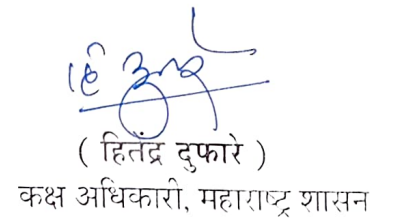 ( हितेंद्र दुफारे )
कक्ष अधिकारी, महाराष्ट्र शासन